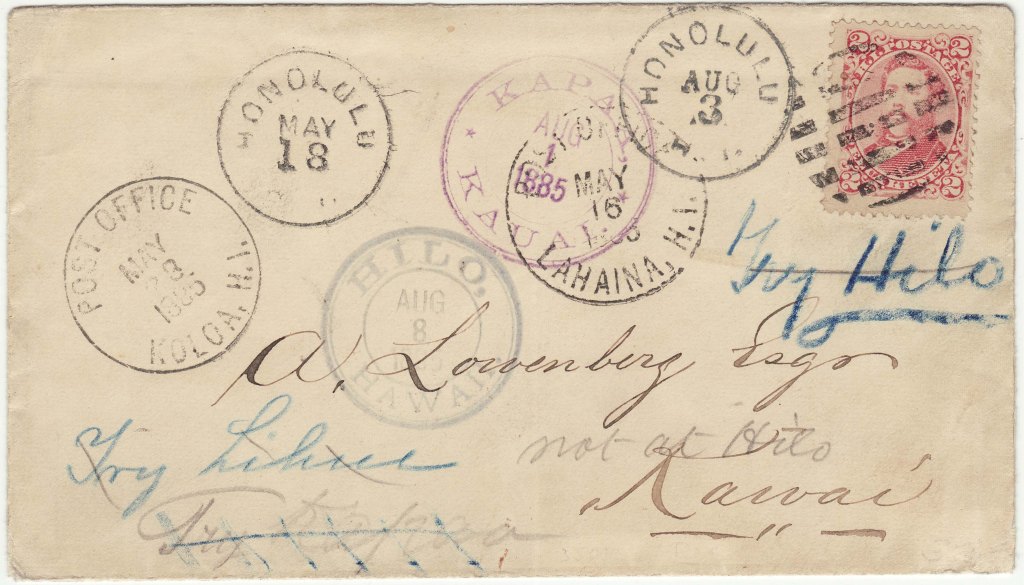 HONOLULU
MAY
18
KAPAA
AUG
1
1885
KAUAI
HONOLULU
AUG
3
H. I.
2 POSTAGE 2
POST OFFICE
MAY
16
LAHAINA, H.I.
POST OFFICE
MAY
28
1885
KOLOA, H.I.
HILO,
AUG
8
HAWAII
Try Hilo
A. Lowenberg Esqr
Try Lihue
not at Hilo
Kawai
Try Kapaa